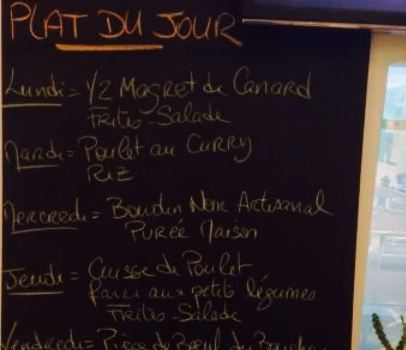 PLAT DU JOUR
Lundi = 1/2 Magret de Canard
Frites - Salade
Mardi = Poulet au Curry
Riz
Mercredi = Boudin Noir Artisanal
Purée Maison
Jeudi = Cuisse de Poulet
farci aux petits légumes
Frites - Salade
Vendredi = Pièce de Bœuf du Boucher